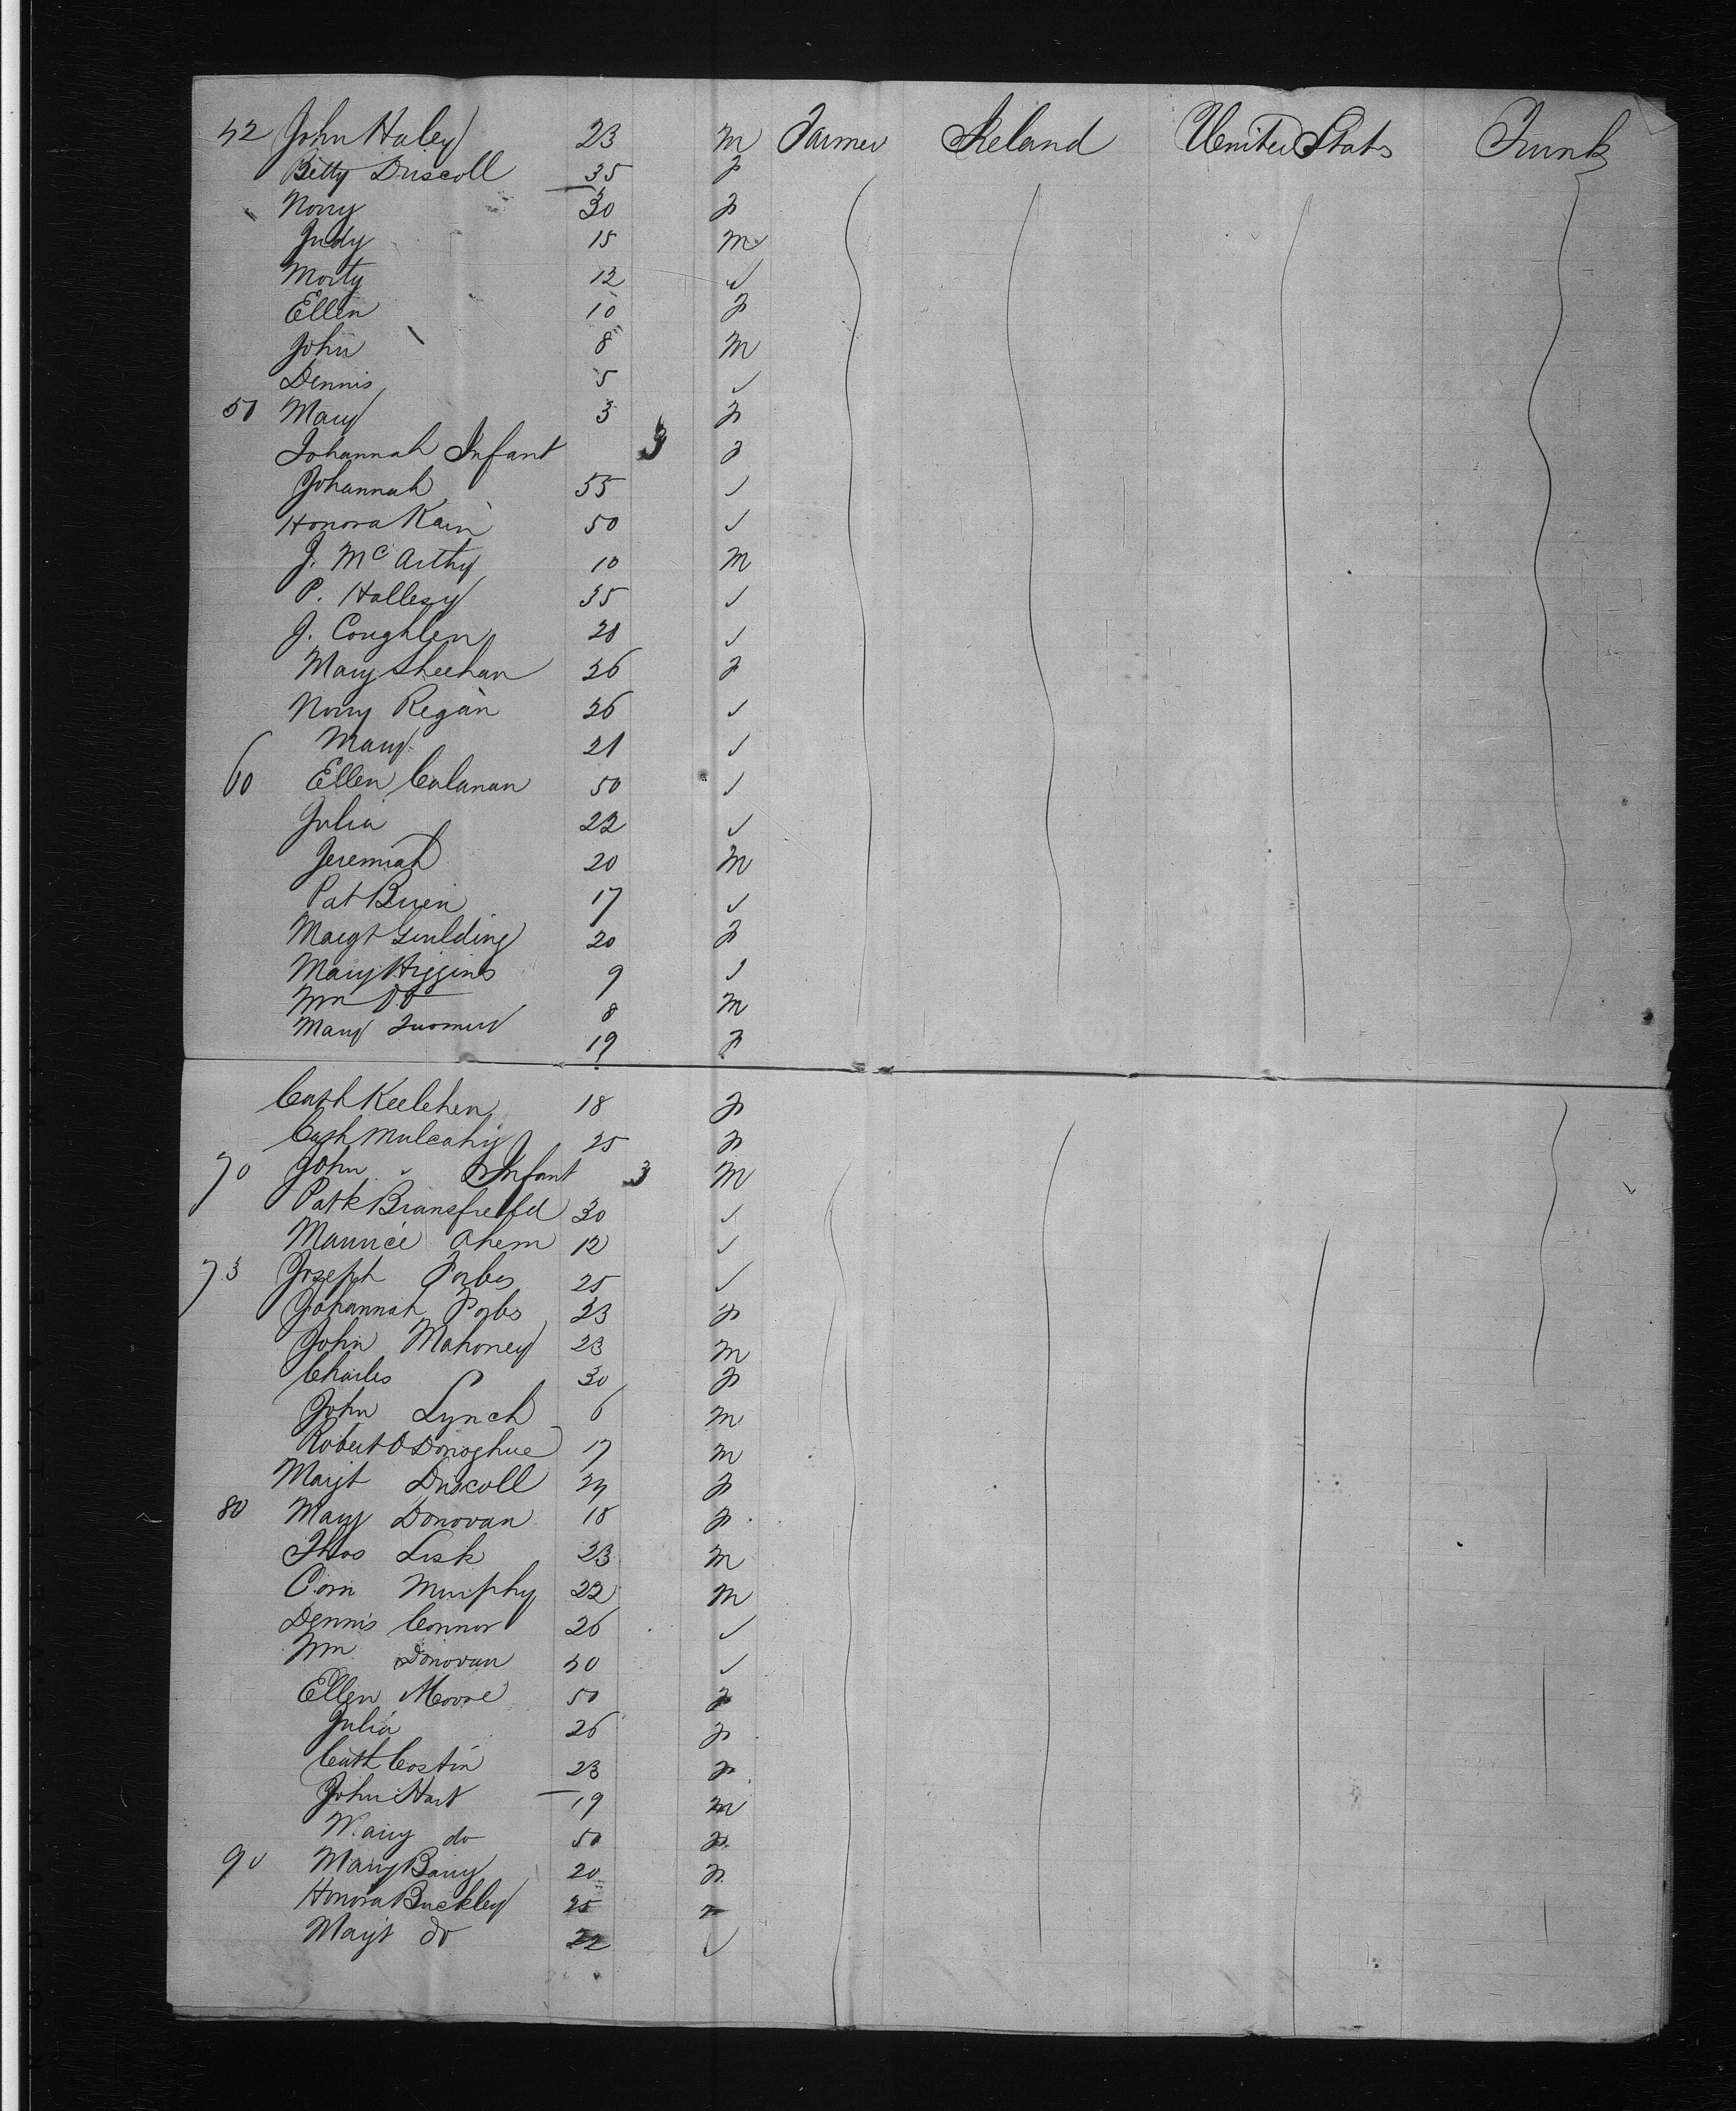 42 John Haley 23 M Farmer Ireland United Stats Trunk
Betty Driscoll 35 F
Nony 30 F
Judy 15 M
Morty 12 ✓
Ellen 10 F
John 8 M
Dennis 5 ✓
50 Mary 3 F
Johannah Infant 3 F
Johannah 55 ✓
Honora Kain 50 ✓
J. McArthy 10 M
P. Hallesy 35 ✓
J. Coughlen 20 ✓
Mary Sheehan 26 F
Nony Regan 26 ✓
Mary 21 ✓
60 Ellen Calanan 50 ✓
Julia 22 ✓
Jeremiah 20 M
Pat Brien 17 ✓
Margt Goulding 20 F
Mary Higgins 9 ✓
Wm Do 8 M
Mary Twomey 19 F
Cath Keelehen 18 F
Cath Mulcahy 25 F
70 John " Infant 3 M
Patk Bransfield 30 ✓
Maurice Ahern 12 ✓
73 Joseph Forbes 25 ✓
Johannah Forbs 23 F
John Mahoney 23 M
Charles 30 F
John Lynch 6 M
Robert O Donoghue 17 M
Margt Driscoll 24 F
80 Mary Donovan 18 F
Thos Lisk 23 M
Corn Murphy 22 M
Dennis Connor 26 ✓
Wm Donovan 30 ✓
Ellen Moore 50 F
Julia 26 F
Cath Costin 23 F
John Hart 19 M
Mary do 50 F
90 Mary Barry 20 F
Honora Buckley 25 F
Margt do 22 ✓